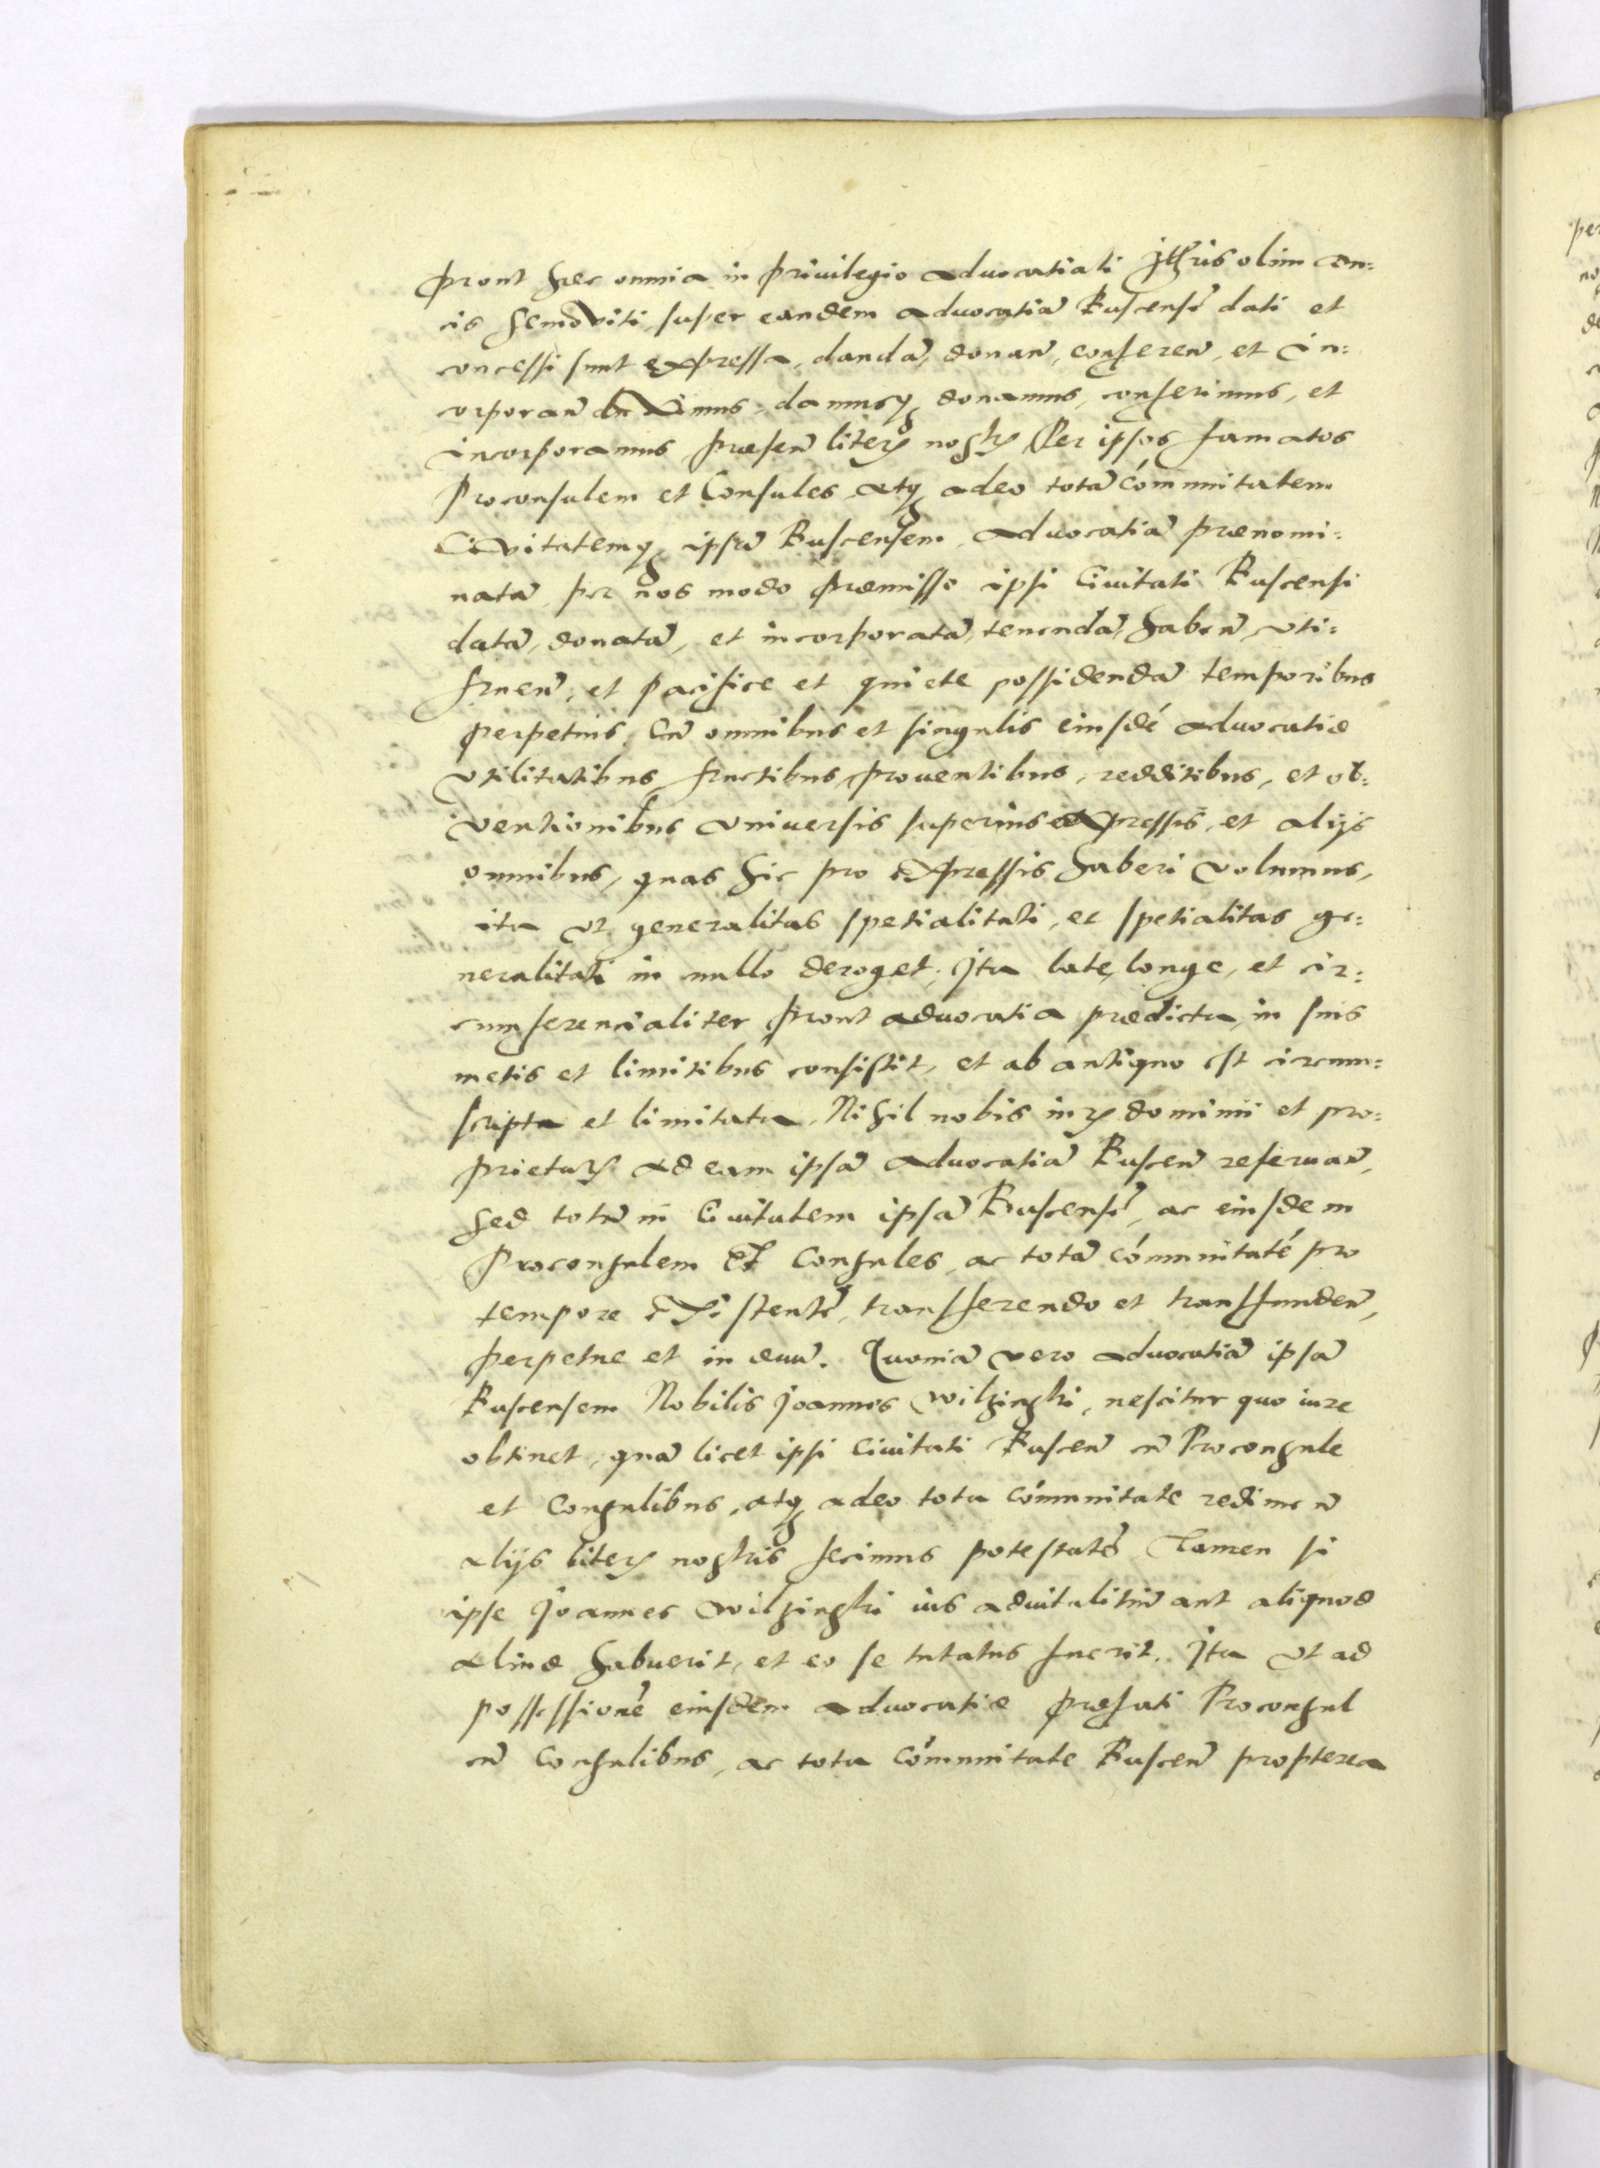 prout hec omnia in priuilegio aduocatiali olim Du=
cis Semoviti super eandem aduocatiã Buscensẽ dati et
concessi sunt expressa, dandã, donañ, confereñ, et in=
corporañ duximus, damusq3 donamus, conferimus, et
incorporamus præseñ literis nostris Per ipsos famatos
Proconsulem et Consules atq3 adeo totã cõmunitatem
Civitatemq3 ipsã Buscensem, aduocatiã prænomi=
natã, per nos modo præmisso ipsi Ciuitati Buscensi
datã, donatã, et incorporatã, tenendã, habeñ, vti=
frueñ, et pacifice et quiete possidendã temporibus
perpetuis, Cũ omnibus et singulis eiusdẽ aduocatiæ
vtilitatibus fructibus, prouentibus, redditibus, et ob=
ventionibus vniuersis superius expressis, et alijs
omnibus, quas hic pro expressis haberi volumus,
ita vt generalitas spetialitati, et spetialitas ge=
neralitati in nullo deroget, Ita late, longe, et cir=
cumferencialiter prout aduocatia prædicta in suis
metis et limitibus consistit, et ab antiquo est circum=
scripta et limitata, Nihil nobis iuris dominii et pro=
prietatis ad eam ipsã aduocatiã Busceñ reseruañ,
sed totũ in Ciuitatem ipsã Buscensẽ, ac eiusdem
Proconsulem Et Consules, ac totã cõmunitatẽ pro
tempore existentẽ, transferendo et transfundeñ,
perpetue et in æuũ. Quoniã vero aduocatiã ipsã
Buscensem Nobilis Joannes Wilzinski, nescitur quo iure
obtinet, quã licet ipsi Ciuitati Busceñ cũ Proconsule
et Consulibus, atq3 adeo tota cõmunitate redimeñ
alijs literis nostris fecimus potestatẽ, Tamen si
ipse Joannes Wilzinski ius aduitalitiũ aut aliquod
aliud habuerit, et eo se tutatus fuerit, Ita vt ad
possessionẽ eiusdem aduocatiæ præfati Proconsul
cũ Consulibus, ac tota cõmunitate Busceñ propterea